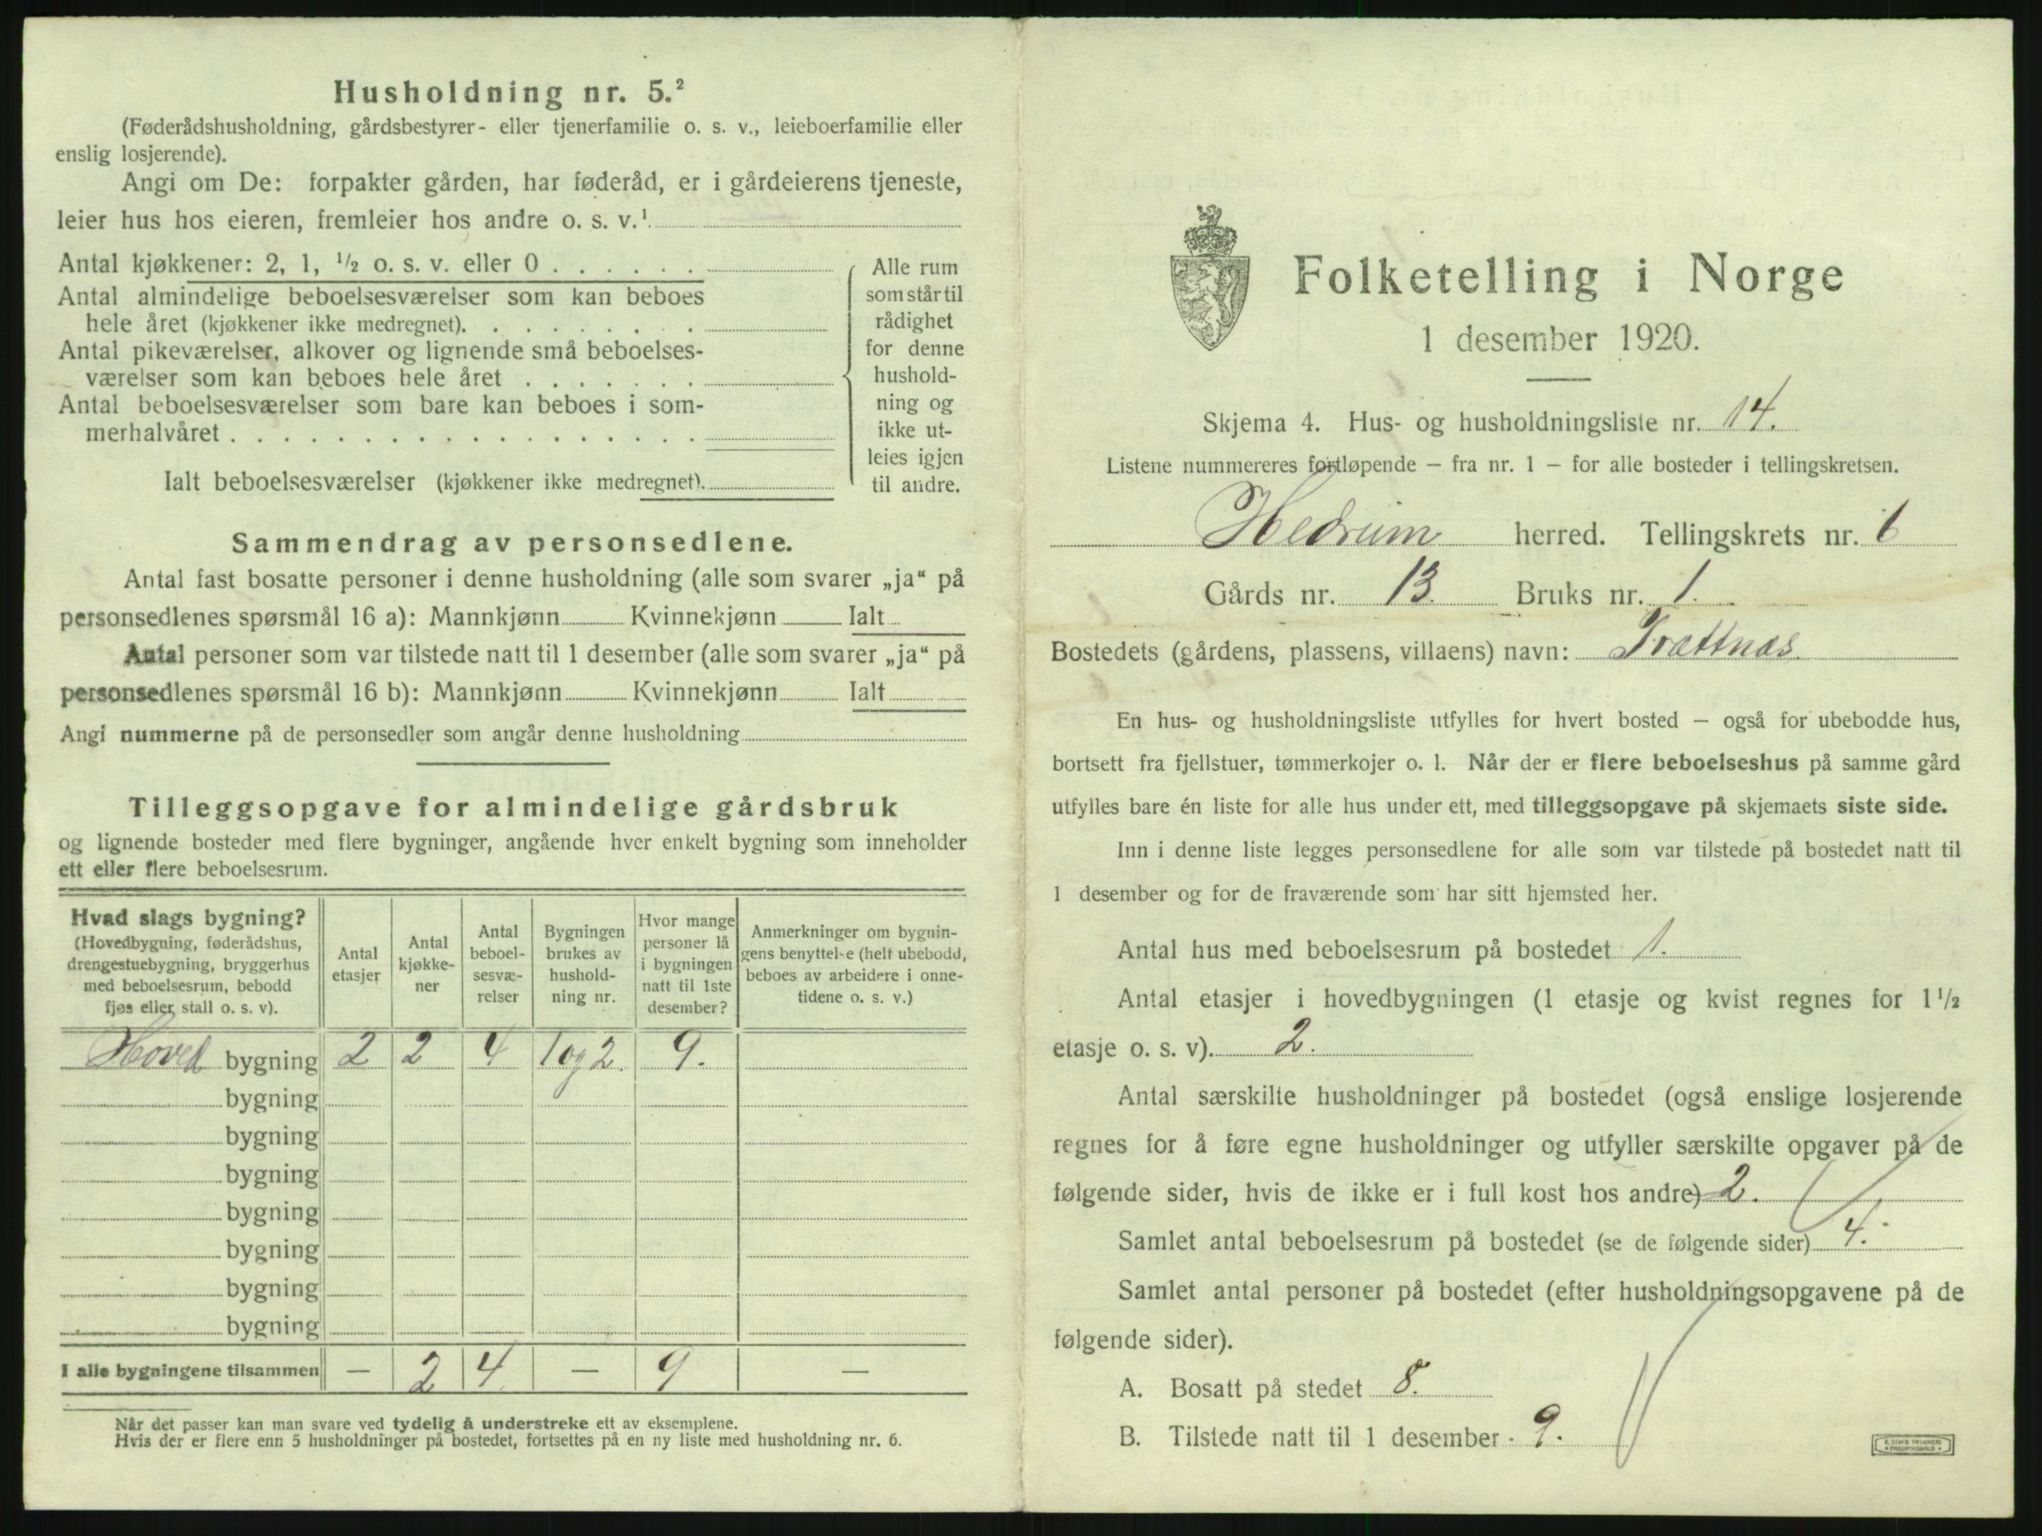 Husholdning nr. 5.²
(Føderådshusholdning, gårdsbestyrer- eller tjenerfamilie o. s. v., leieboerfamilie eller
enslig losjerende).
Angi om De: forpakter gården, har føderåd, er i gårdeierens tjeneste,
leier hus hos eieren, fremleier hos andre o. s. v.¹
Antal kjøkkener: 2, 1, ½ o. s. v. eller 0 . . . . . .
Antal almindelige beboelsesværelser som kan beboes
hele året (kjøkkener ikke medregnet). . . . . . . . .
Antal pikeværelser, alkover og lignende små beboelses-
værelser som kan beboes hele året . . . . . . .
Antal beboelsesværelser som bare kan beboes i som-
merhalvåret . . . . . . . . . . . . . . . . . .
Ialt beboelsesværelser (kjøkkener ikke medregnet).
Alle rum
som står til
rådighet
for denne
hushold-
ning og
ikke ut-
leies igjen
til andre.
Sammendrag av personsedlene.
Antal fast bosatte personer i denne husholdning (alle som svarer „ja“ på
personsedlenes spørsmål 16 a): Mannkjønn Kvinnekjønn Ialt
Antal personer som var tilstede natt til 1 desember (alle som svarer „ja“ på
personsedlenes spørsmål 16 b): Mannkjønn Kvinnekjønn Ialt
Angi nummerne på de personsedler som angår denne husholdning
Tilleggsopgave for almindelige gårdsbruk
og lignende bosteder med flere bygninger, angående hver enkelt bygning som inneholder
ett eller flere beboelsesrum.
Hvad slags bygning?
(Hovedbygning, føderådshus,
drengestuebygning, bryggerhus
med beboelsesrum, bebodd
fjøs eller stall o. s. v).
Antal
etasjer
Antal
kjøkke-
ner
Antal
beboel-
sesvæ-
relser
Bygningen
brukes av
hushold-
ning nr.
Hvor mange
personer lå
i bygningen
natt til 1ste
desember?
Anmerkninger om bygnin-
gens benyttelse (helt ubebodd,
beboes av arbeidere i onne-
tidene o. s. v.)
Hoved bygning 2 2 4 1 og 2. 9.
bygning
bygning
bygning
bygning
bygning
bygning
bygning
I alle bygningene tilsammen — 2 4. — 9 —
Når det passer kan man svare ved tydelig å understreke ett av eksemplene.
Hvis der er flere enn 5 husholdninger på bostedet, fortsettes på en ny liste med husholdning nr. 6.
Folketelling i Norge
1 desember 1920.
Skjema 4. Hus- og husholdningsliste nr. 14.
Listene nummereres fortløpende – fra nr. 1 – for alle bosteder i tellingskretsen.
Hedrum herred. Tellingskrets nr. 6
Gårds nr. 13. Bruks nr. 1.
Bostedets (gårdens, plassens, villaens) navn: Trættnæs.
En hus- og husholdningsliste utfylles for hvert bosted – også for ubebodde hus,
bortsett fra fjellstuer, tømmerkojer o. l. Når der er flere beboelseshus på samme gård
utfylles bare én liste for alle hus under ett, med tilleggsopgave på skjemaets siste side.
Inn i denne liste legges personsedlene for alle som var tilstede på bostedet natt til
1 desember og for de fraværende som har sitt hjemsted her.
Antal hus med beboelsesrum på bostedet 1.
Antal etasjer i hovedbygningen (1 etasje og kvist regnes for 1½
etasje o. s. v). 2.
Antal særskilte husholdninger på bostedet (også enslige losjerende
regnes for å føre egne husholdninger og utfyller særskilte opgaver på de
følgende sider, hvis de ikke er i full kost hos andre) 2.
Samlet antal beboelsesrum på bostedet (se de følgende sider) 4.
Samlet antal personer på bostedet (efter husholdningsopgavene på de
følgende sider).
A. Bosatt på stedet 8.
B. Tilstede natt til 1 desember 9.